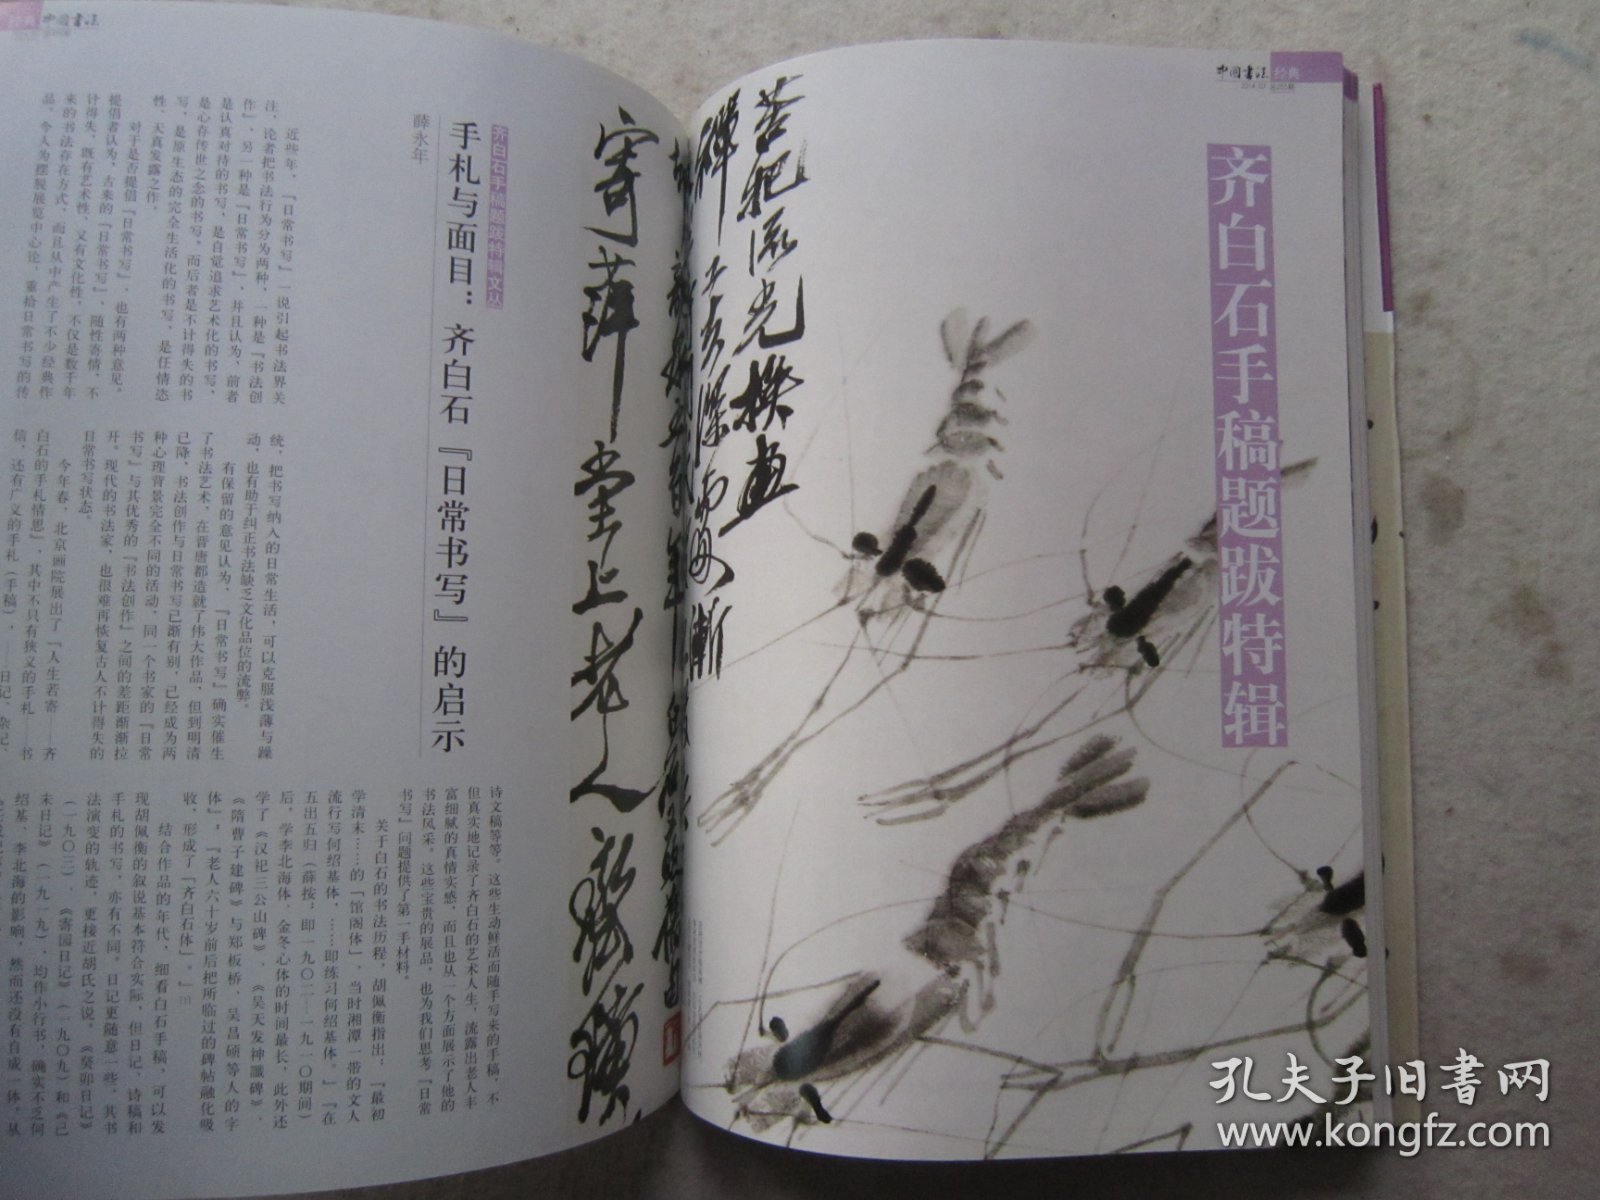 经典 中国书法
齐白石手稿题跋特辑文丛
手札与面目：齐白石『日常书写』的启示
薛永年
近些年，『日常书写』一说引起书法界关
注，论者把书法行为分为两种，一种是『书法创
作』，另一种是『日常书写』，并且认为，前者
是认真对待的书写，是自觉追求艺术化的书写，
是心存传世之念的书写。而后者是不计得失的书
写，是原生态的完全生活化的书写，是任情恣
性、天真发露之作。
对于是否提倡『日常书写』，也有两种意见，
提倡者认为，古来的『日常书写』，随性寄情，不
计得失，既有艺术性，又有文化性，不仅是数千年
来的书法存在方式，而且从中产生了不少经典作
品，今人为摆脱展览中心论，重拾日常书写的传
统，把书写纳入的日常生活，可以克服浅薄与躁
动，也有助于纠正书法缺乏文化品位的流弊。
有保留的意见认为，『日常书写』确实催生
了书法艺术，在晋唐都造就了伟大作品，但到明清
已降，书法创作与日常书写已渐有别，已经成为两
种心理背景完全不同的活动，同一个书家的『日常
书写』与其优秀的『书法创作』之间的差距渐渐拉
开。现代的书法家，也很难再恢复古人不计得失的
日常书写状态。
今年春，北京画院展出了『人生若寄——齐
白石的手札情思』，其中不只有狭义的手札——书
信，还有广义的手札（手稿），——日记、杂记、
诗文稿等等。这些生动鲜活而随手写来的手稿，不
但真实地记录了齐白石的艺术人生，流露出老人丰
富细腻的真情实感，而且也从一个方面展示了他的
书法风采。这些宝贵的展品，也为我们思考『日常
书写』问题提供了第一手材料。
关于白石的书法历程，胡佩衡指出：『最初
学清末……的「馆阁体」，当时湘潭一带的文人
流行写何绍基体，……即练习何绍基体。』『在
五出五归（薛按：即一九〇二—一九一〇期间）
后，学李北海体，金冬心体的时间最长，此外还
学了《汉祀三公山碑》、《吴天发神谶碑》，
《隋曹子建碑》与郑板桥、吴昌硕等人的字
体』，『老人六十岁前后把所临过的碑帖融化吸
收，形成了「齐白石体」。』[1]
结合作品的年代，细看白石手稿，可以发
现胡佩衡的叙说基本符合实际，但日记、诗稿和
手札的书写，亦有不同。日记更随意一些，其书
法演变的轨迹，更接近胡氏之说。《癸卯日记》
（一九〇三）、《寄园日记》（一九〇九）和《己
未日记》（一九一九），均作小行书，确实不乏何
绍基、李北海的影响，然而还没有自成一体，从
寄萍堂上老人齐璜
中国书法 经典
齐白石手稿题跋特辑
孔夫子旧书网
www.kongfz.com